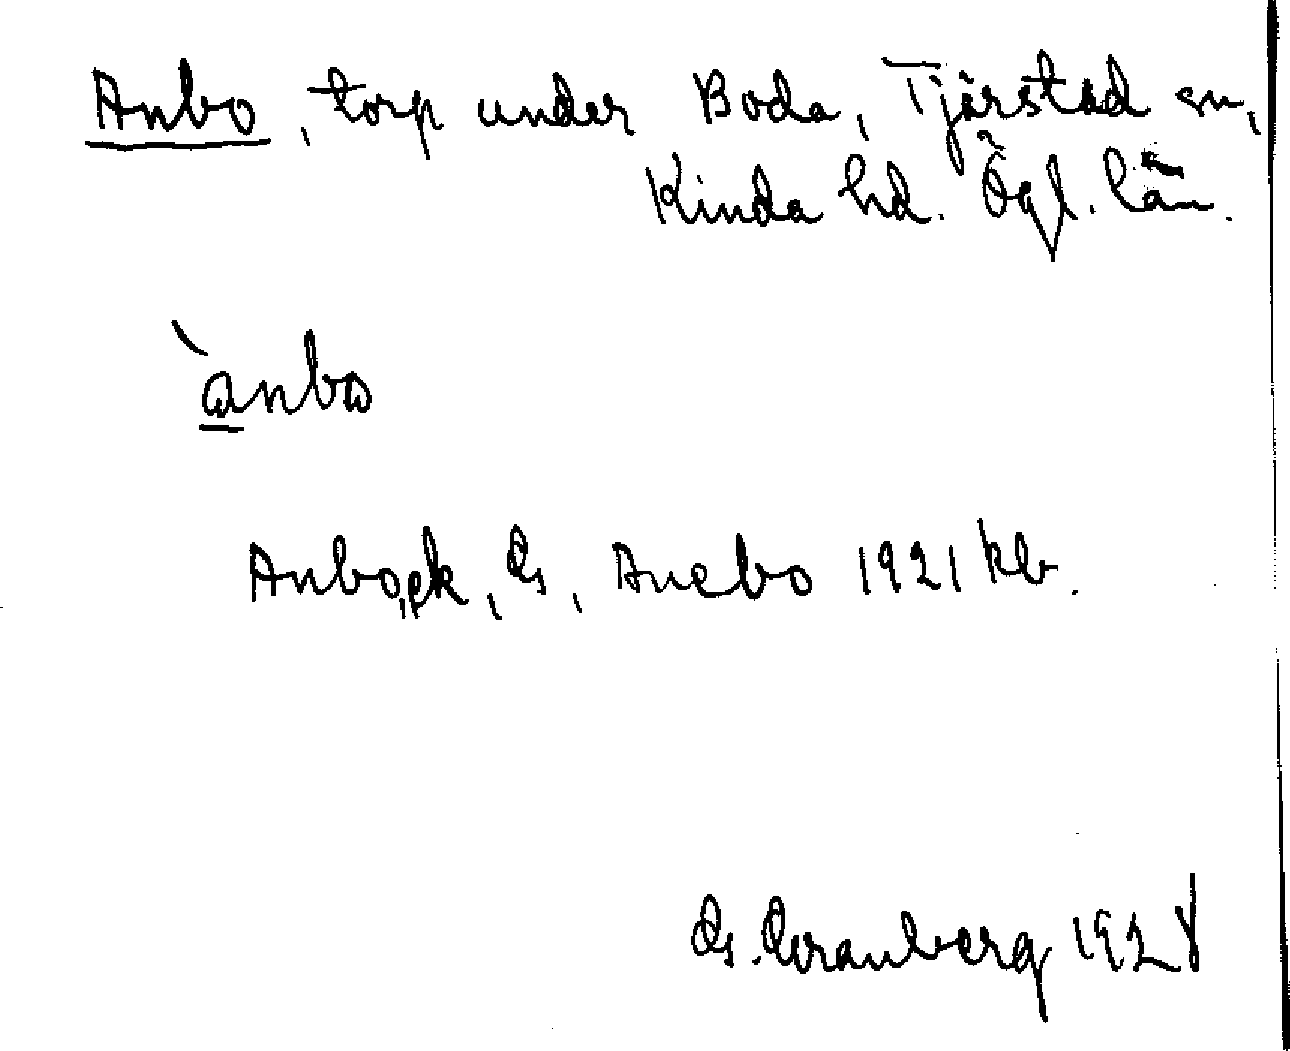 Anbo, torp under Boda, Tjärstad sn,
Kinda hd. Ögl. län.
`anbω
Anbo, ek, G, Anebo 1921 kb.
G. Granberg 1928